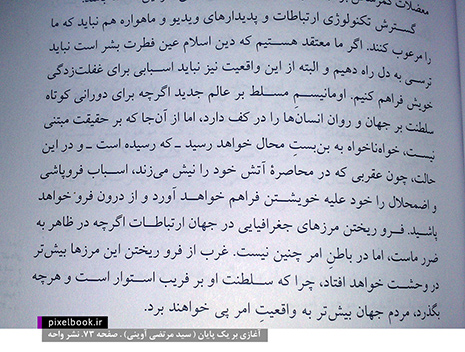 معضلات
گسترش تکنولوژی ارتباطات و پدیدارهای ویدیو و ماهواره هم نباید که ما
را مرعوب کنند. اگر ما معتقد هستیم که دین اسلام عین فطرت بشر است نباید
ترسی به دل راه دهیم و البته از این واقعیت نیز نباید اسبابی برای غفلت‌زدگی
خویش فراهم کنیم. اومانیسمِ مسلط بر عالم جدید اگرچه برای دورانی کوتاه
سلطنت بر جهان و روان انسان‌ها را در کف دارد، اما از آن‌جا که بر حقیقت مبتنی
نیست، خواه‌ناخواه به بن‌بستِ محال خواهد رسید ـ که رسیده است ـ و در این
حالت، چون عقربی که در محاصرهٔ آتش خود را نیش می‌زند، اسباب فروپاشی
و اضمحلال را خود علیه خویشتن فراهم خواهد آورد و از درون فرو خواهد
پاشید. فرو ریختن مرزهای جغرافیایی در جهان ارتباطات اگرچه در ظاهر به
ضرر ماست، اما در باطنِ امر چنین نیست. غرب از فرو ریختن این مرزها بیش‌تر
در وحشت خواهد افتاد، چرا که سلطنت او بر فریب استوار است و هرچه
بگذرد، مردم جهان بیش‌تر به واقعیتِ امر پی خواهند برد.
pixelbook.ir
آغازی بر یک پایان ( سید مرتضی آوینی ) . صفحه ۷۳. نشر واحه